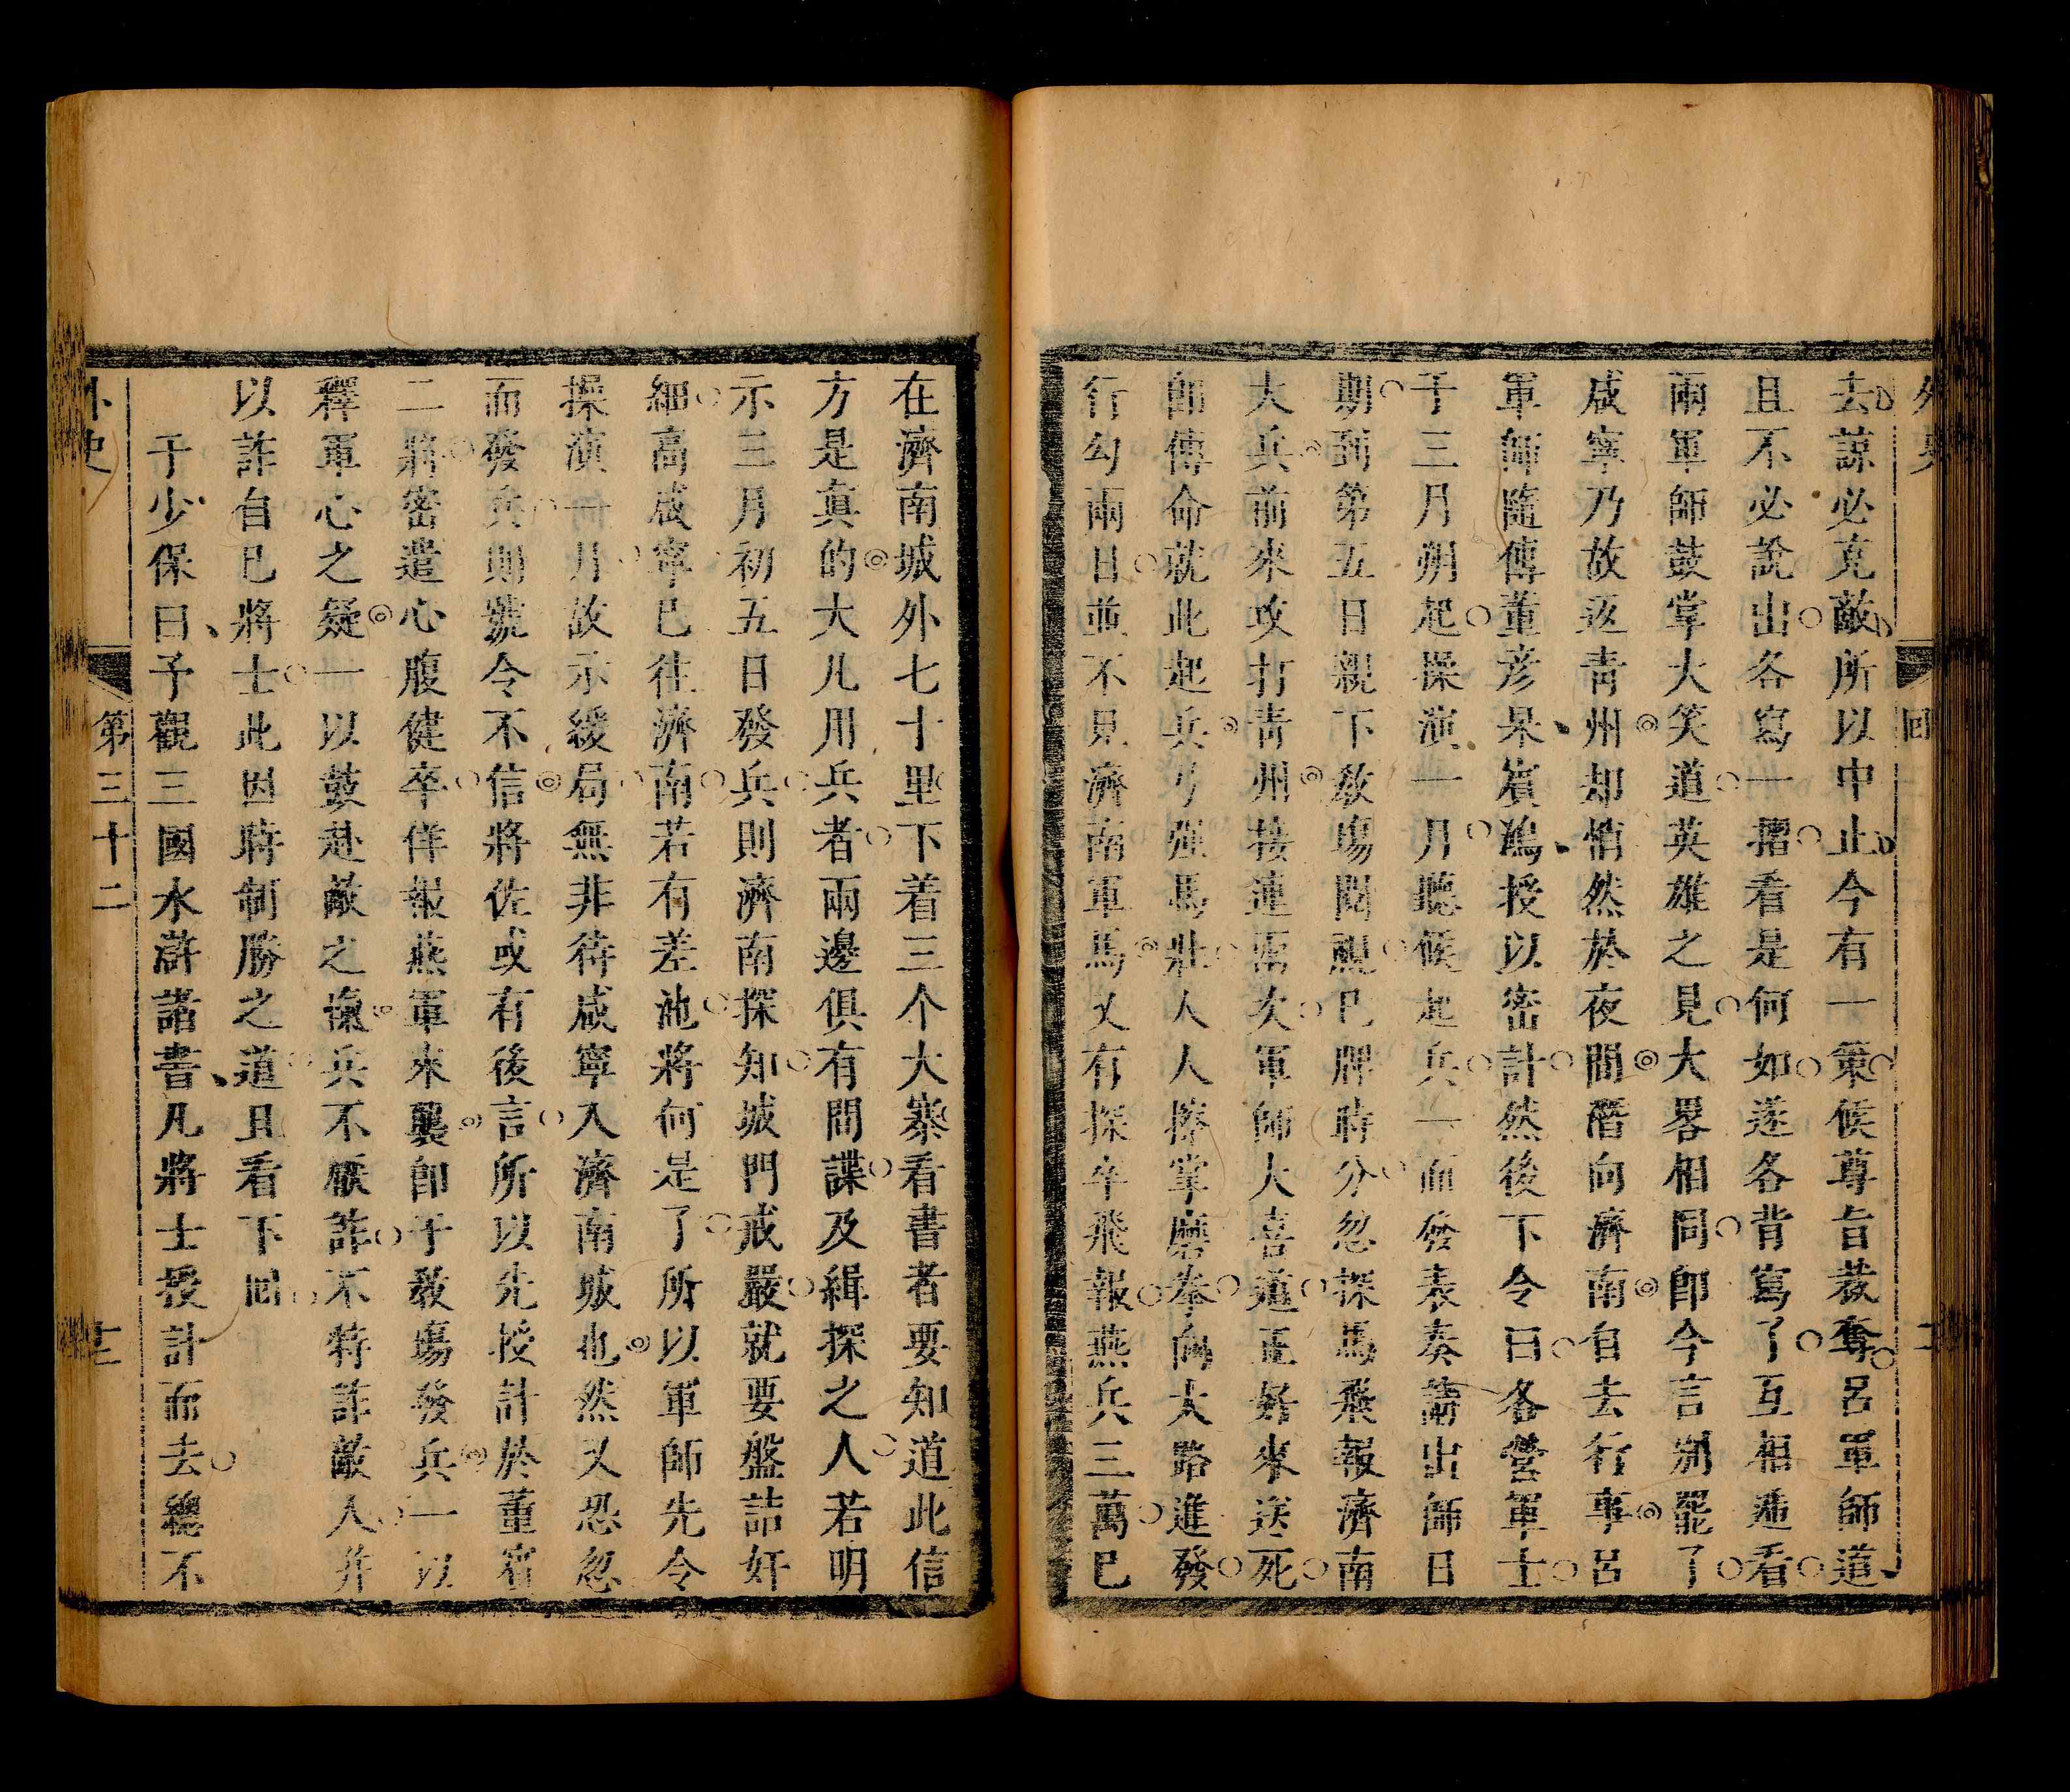 去諒必克敵所以中止今有一策候尊旨裁奪呂軍師道
且不必說出各寫一摺看是何如遂各背寫了互相遞看
兩軍師鼓掌大笑道英雄之見大畧相同卽今言別罷了
咸寧乃故返靑州却悄然於夜間潛向濟南自去行事呂
軍師隨傳董彥杲賓鴻授以密計然後下令曰各營軍士
于三月朔起操演一月聽候起兵一面發表奏請出師日
期到第五日親下教塲閱視巳牌時分忽探馬飛報濟南
大兵前來攻打靑州接連兩次軍師大喜道正好來送死
卽傳命就此起兵弓强馬壯人人摩掌磨拳向大路進發
行勾兩日並不見濟南軍馬又有探卒飛報燕兵三萬巳
在濟南城外七十里下着三个大寨看書者要知道此信
方是真的大凡用兵者兩邊俱有間諜及緝探之人若明
示三月初五日發兵則濟南探知城門戒嚴就要盤詰奸
細高咸寧巳往濟南若有差池將何是了所以軍師先令
操演一月故示緩局無非待咸寧入濟南城也然又恐忽
而發兵則號令不信將佐或有後言所以先授計於董賓
二將密遣心腹健卒佯報燕軍來襲卽于教塲發兵一以
釋軍心之疑一以鼓赴敵之氣兵不厭詐不特詐敵人并
以詐自巳將士此因時制勝之道且看下回
于少保曰予觀三國水滸諸書凡將士授計而去總不
外史
第三十二
十三